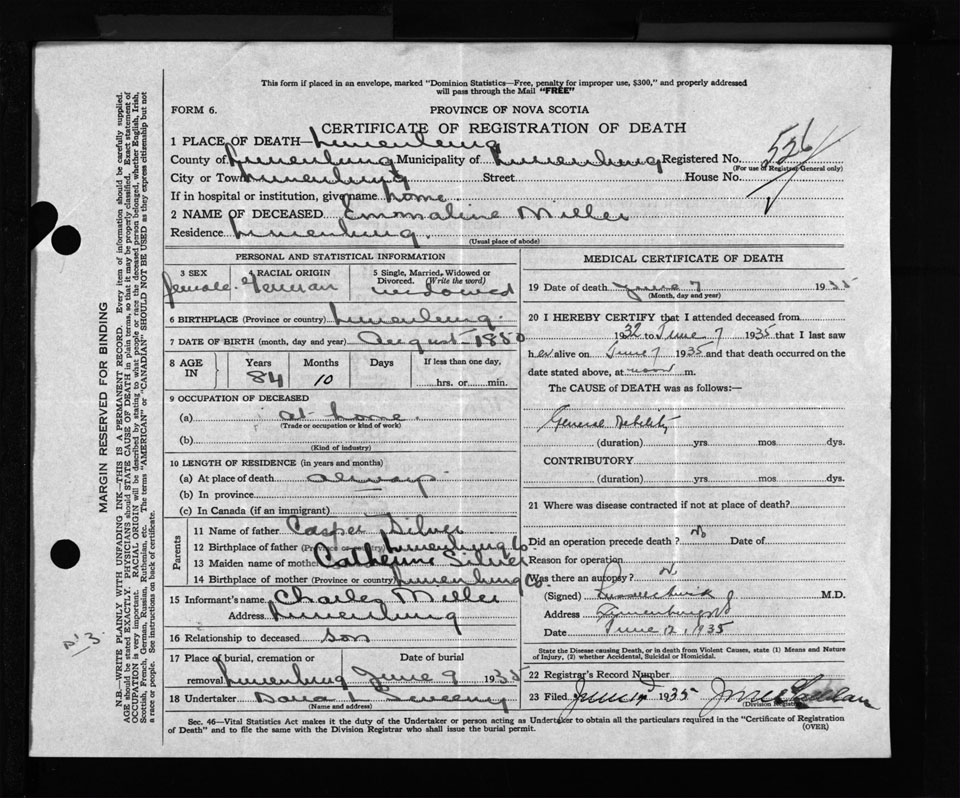 This form if placed in an envelope, marked "Dominion Statistics—Free, penalty for improper use, $300," and properly addressed
will pass through the Mail "FREE"
FORM 6.
PROVINCE OF NOVA SCOTIA
CERTIFICATE OF REGISTRATION OF DEATH
1 PLACE OF DEATH— Lunenburg
County of Lunenburg Municipality of Lunenburg Registered No. 526
(For use of Registrar General only)
City or Town Lunenburg Street House No.
If in hospital or institution, give name home
2 NAME OF DECEASED Emmaline Miller
Residence Lunenburg.
(Usual place of abode)
PERSONAL AND STATISTICAL INFORMATION
3 SEX 4 RACIAL ORIGIN 5 Single, Married, Widowed or Divorced. (Write the word)
female. German widowed
6 BIRTHPLACE (Province or country) Lunenburg.
7 DATE OF BIRTH (month, day and year) August - 1850
8 AGE IN Years Months Days If less than one day,
84 10 hrs. or min.
9 OCCUPATION OF DECEASED
(a) at home.
(Trade or occupation or kind of work)
(b)
(Kind of industry)
10 LENGTH OF RESIDENCE (in years and months)
(a) At place of death always
(b) In province
(c) In Canada (if an immigrant)
Parents
11 Name of father Casper Silver
12 Birthplace of father (Province or country) Lunenburg Co.
13 Maiden name of mother Catherine Silver
14 Birthplace of mother (Province or country) Lunenburg Co.
15 Informant's name Charles Miller
Address Lunenburg
16 Relationship to deceased son
17 Place of burial, cremation or removal Date of burial
Lunenburg June 9 1935
18 Undertaker
(Name and address)
MEDICAL CERTIFICATE OF DEATH
19 Date of death June 7 1935
(Month, day and year)
20 I HEREBY CERTIFY that I attended deceased from
1932 to June 7 1935 that I last saw
her alive on June 7 1935 and that death occurred on the
date stated above, at noon m.
The CAUSE of DEATH was as follows:—
General Debility
(duration) yrs. mos. dys.
CONTRIBUTORY
(duration) yrs. mos. dys.
21 Where was disease contracted if not at place of death?
Did an operation precede death? No Date of
Reason for operation
Was there an autopsy? No
(Signed) M.D.
Address Lunenburg NS
Date June 12, 1935
State the Disease causing Death, or in death from Violent Causes, state (1) Means and Nature
of Injury, (2) whether Accidental, Suicidal or Homicidal.
22 Registrar's Record Number
23 Filed June 1935
(Division Registrar)
Sec. 46—Vital Statistics Act makes it the duty of the Undertaker or person acting as Undertaker to obtain all the particulars required in the "Certificate of Registration
of Death" and to file the same with the Division Registrar who shall issue the burial permit.
(OVER)
MARGIN RESERVED FOR BINDING
N.B.—WRITE PLAINLY WITH UNFADING INK—THIS IS A PERMANENT RECORD. Every item of information should be carefully supplied.
AGE should be stated EXACTLY. PHYSICIANS should STATE CAUSE OF DEATH in plain terms, so that it may be properly classified. Exact statement of
OCCUPATION is very important. RACIAL ORIGIN will be described by stating to what people or race the deceased person belonged, whether English, Irish,
Scottish, French, German, Russian, Ruthenian, etc. The terms "AMERICAN" or "CANADIAN" SHOULD NOT BE USED as they express citizenship but not
a race or people. See instructions on back of certificate.